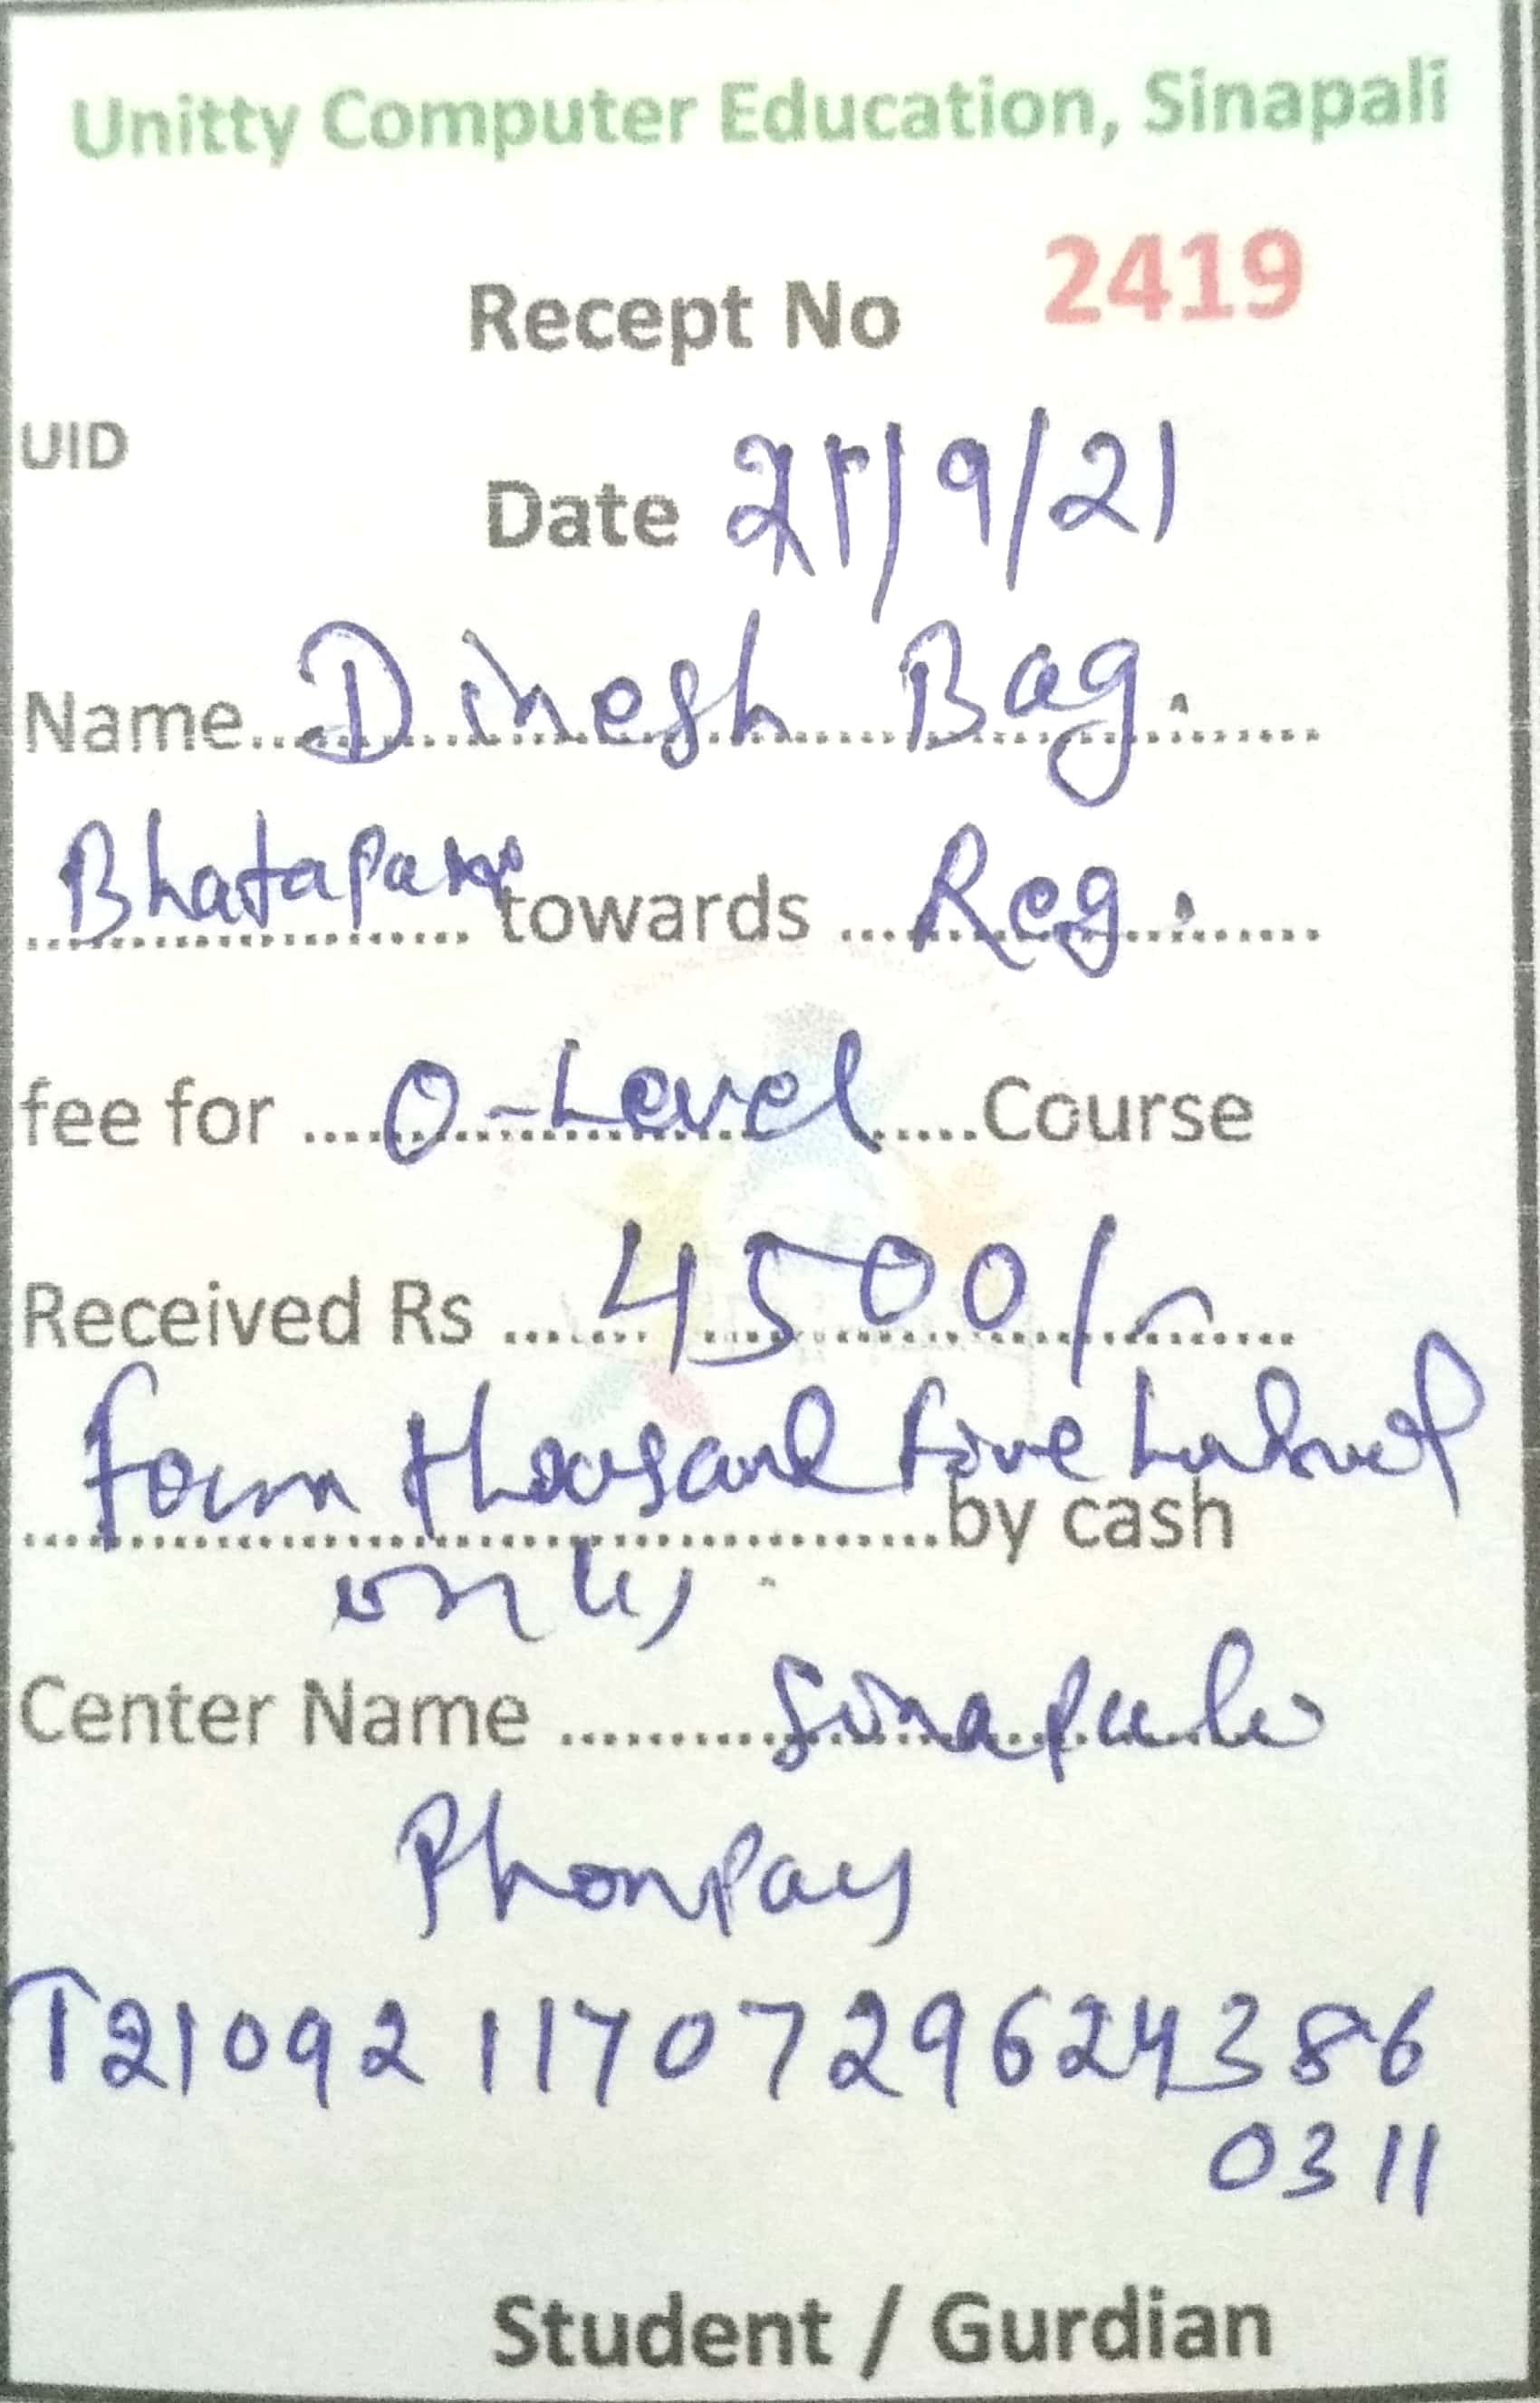 Unitty Computer Education, Sinapali
Recept No 2419
UID
Date 21/9/21
Name Dinesh Bag.
Bhatapara towards Reg.
fee for O-Level Course
Received Rs 4500/-
Four thousand five hundred
by cash
only
Center Name Sinapali
Phonpay
T21092 1170729624386
0311
Student / Gurdian